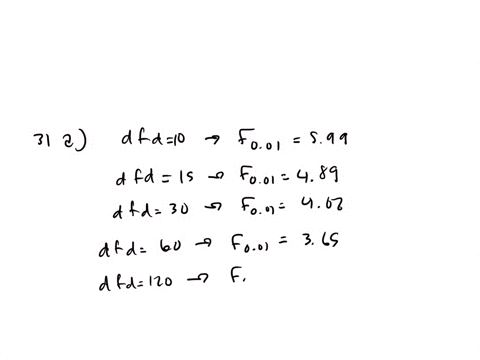 31 a) dfd=10 → F0.01 = 5.99
dfd = 15 → F0.01 = 4.89
dfd = 30 → F0.01 = 4.02
dfd = 60 → F0.01 = 3.65
dfd=120 → F.